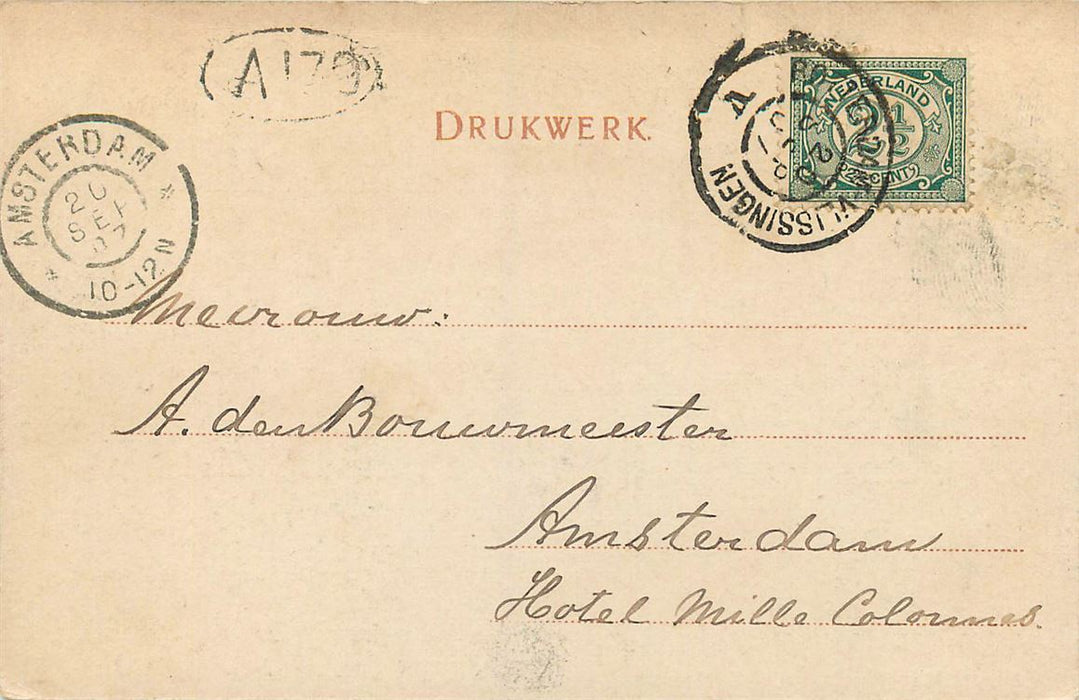 A179
DRUKWERK.
NEDERLAND
2 1/2
CENT
VLISSINGEN
AMSTERDAM
20
SEP
07
10-12 N
Mevrouw:
A. den Bouwmeester
Amsterdam
Hotel Mille Colonnes.